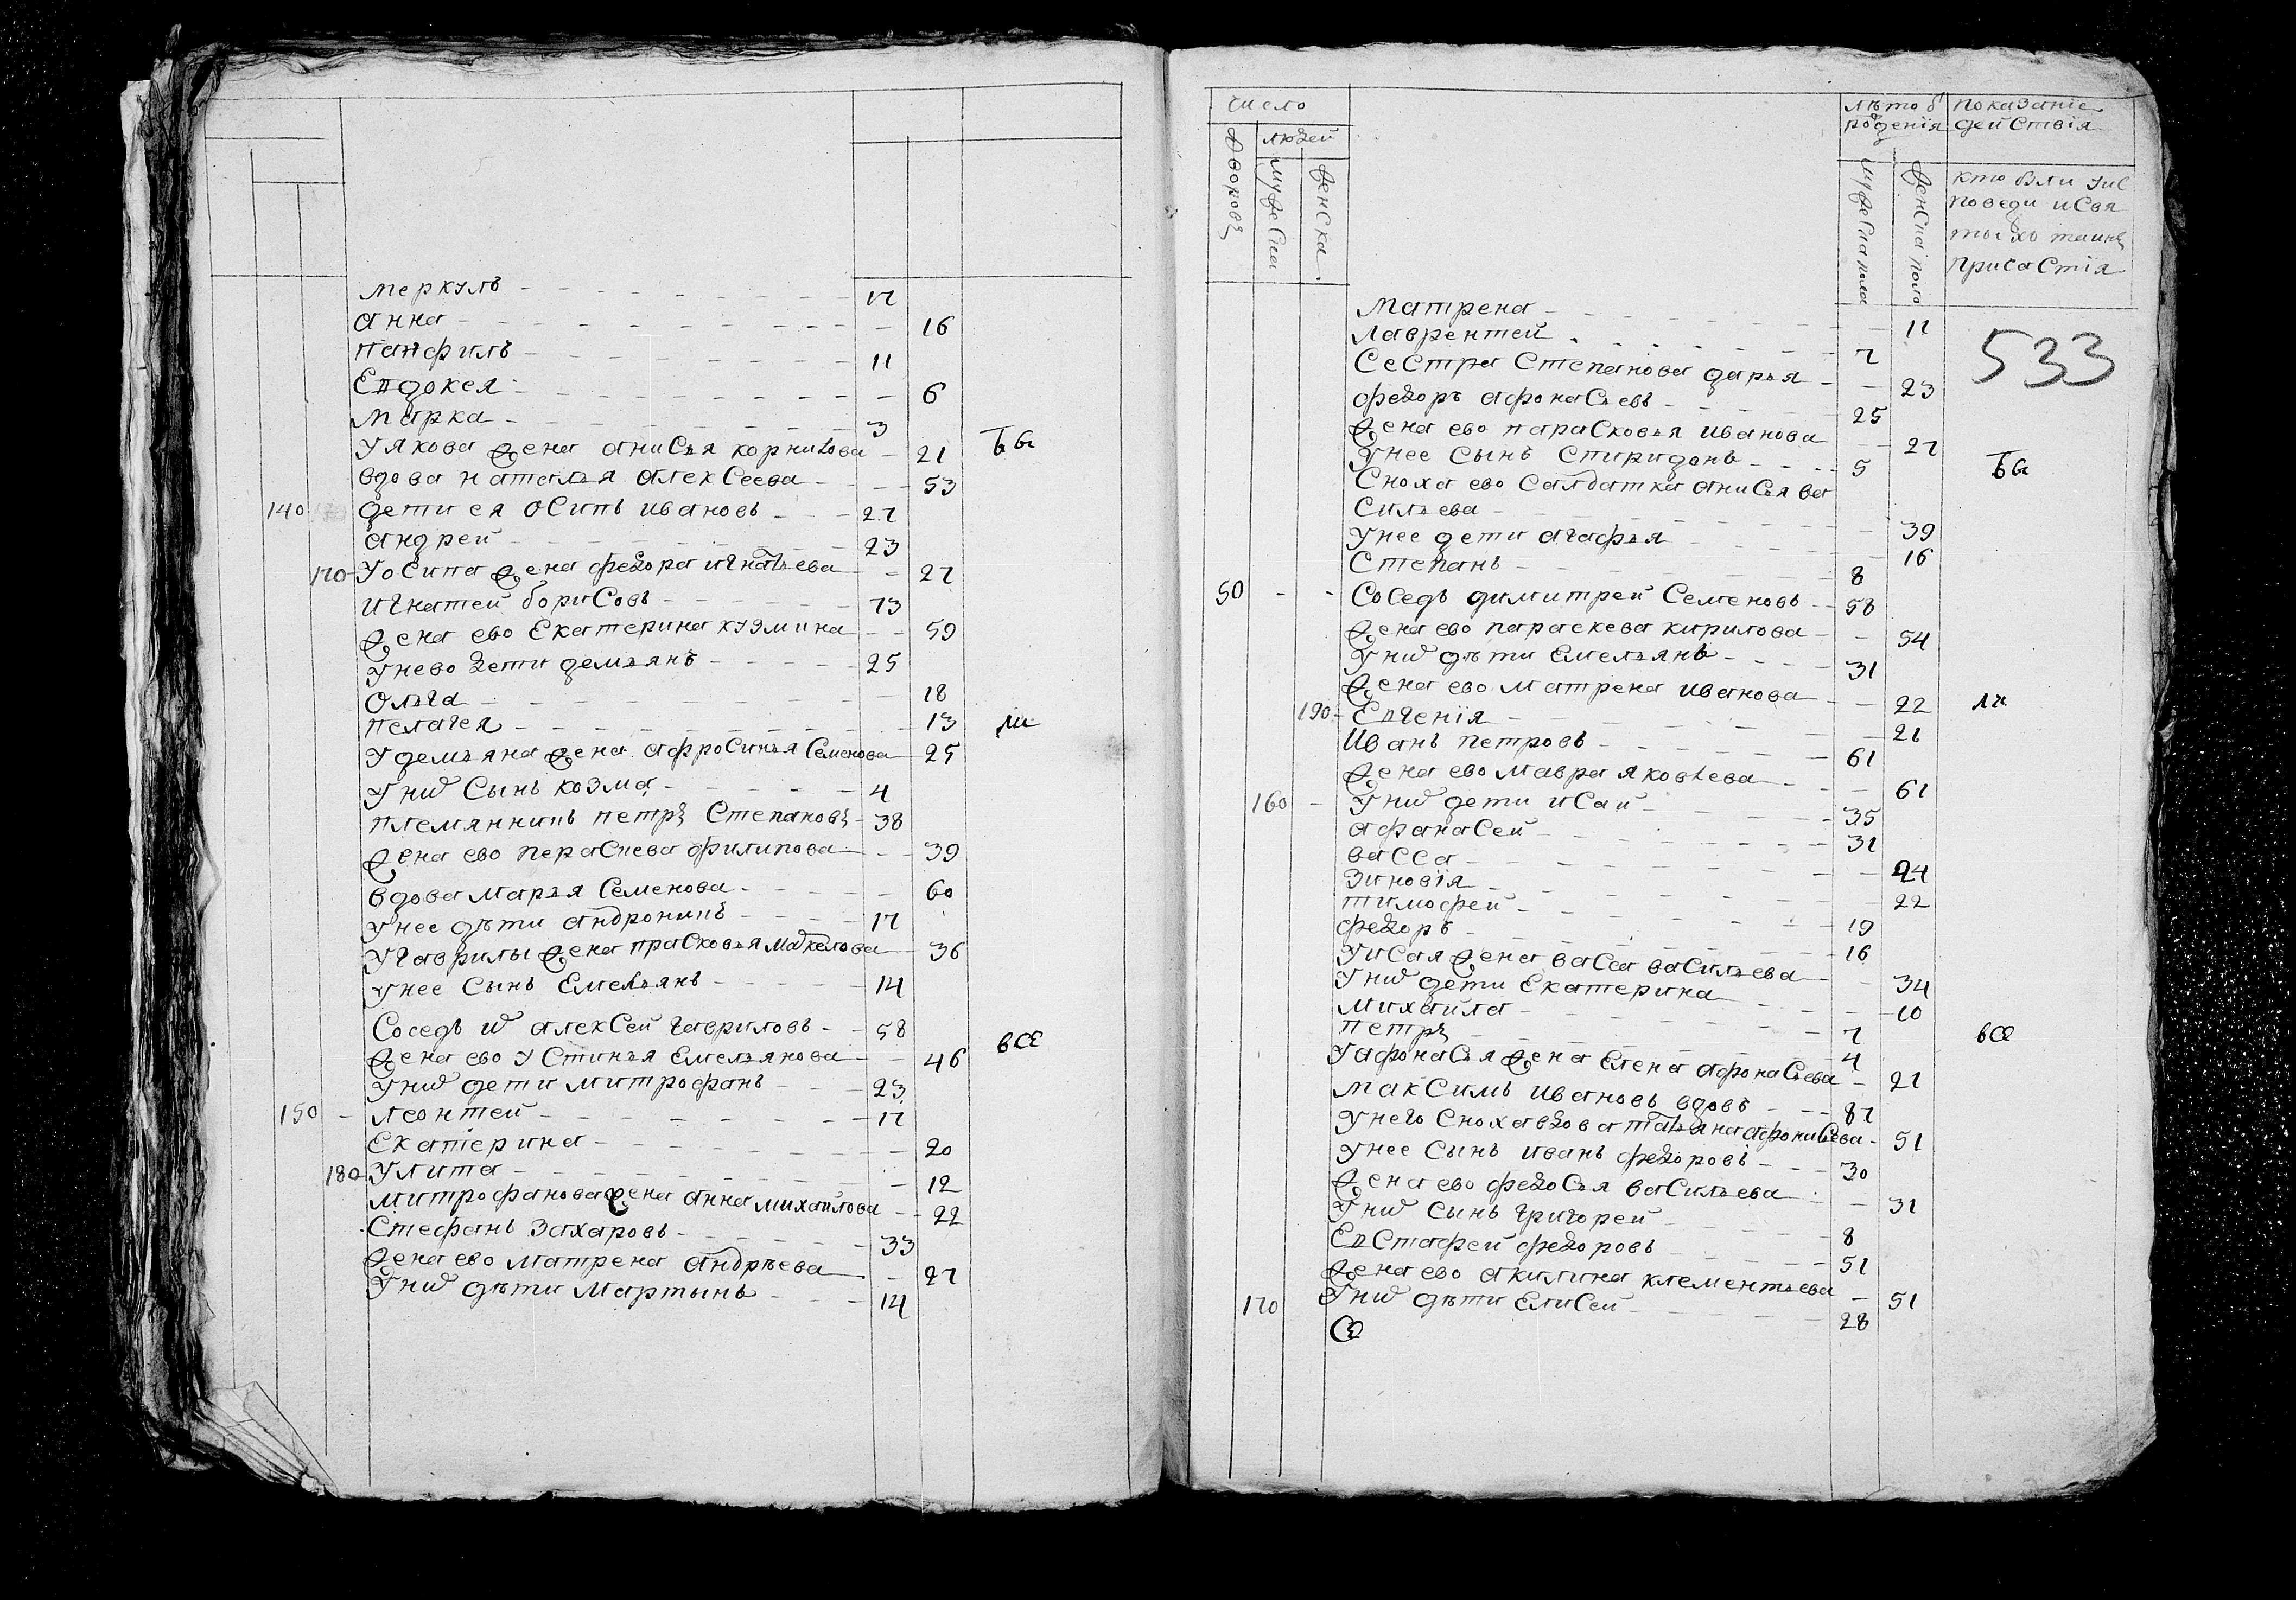 меркулъ 17
анна 16
панфилъ 11
Евдокея 6
марка 3
У якова жена анисья корнилова 21
вдова наталья алексеева 53
140 дети ея осипъ ивановъ 27
андрей 23
170 У осипа жена федора игнатьева 27
игнатей борисовъ 73
жена ево екатерина кузмина 59
У нево дети демьянъ 25
Ольга 18
пелагея 13
У демьяна жена афросинья семенова 25
У ниѡ сынъ козма 4
племянникъ петръ степановъ 38
жена ево параскева филипова 39
вдова марья семенова 60
У нее дѣти андроникъ 17
У гаврилы жена прасковья макелова 36
У нее сынъ емельянъ 14
Соседъ иѡ алексей гавриловъ 58
жена ево устинья емельянова 46
У ниѡ дети митрофанъ 23
150 леонтей 17
Екатерина 20
180 Улита 12
митрофанова жена анна михайлова 22
Стефанъ захаровъ 33
жена ево матрена андрѣева 27
У ниѡ дѣти мартынъ 14
бы
ли
все
число
дворовъ
людей
мужеска
женска
лѣто ѿ рожденїя
мужеска пола
женска пола
показанїе действїя
кто были у ис
поведи и свя
тыхъ таинъ
причастїя
533
матрена 11
лаврентей 7
Сестра степанова дарья 23
федоръ афонасьевъ 25
жена ево парасковья иванова 27
У нее сынъ спиридонъ 5
Сноха ево салдатка анисья ва
сильева 39
У нее дети агафья 16
Степанъ 8
50 Соседъ димитрей семеновъ 58
жена ево параскева кирилова 54
У ниѡ дѣти емельянъ 31
жена ево матрена иванова 22
190 Евгенїя 21
Иванъ петровъ 61
жена ево мавра яковлева 61
160 У ниѡ дети исаи 35
афанасей 31
васса 24
зиновїя 22
тимофей 19
федоръ 16
У исая жена васса васильева 34
У ниѡ дети екатерина 10
михайла 7
петръ 4
У афонасья жена елена афонасьева 21
максимъ ивановъ вдовъ 87
У него сноха вдова татьяна афонасьева 51
У нее сынъ иванъ федоровъ 30
жена ево федосья васильева 31
У ниѡ сынъ григорей 8
Евстафей федоровъ 51
жена ево акилина клементьева 51
170 У ниѡ дѣти елисей 28
бы
ли
все